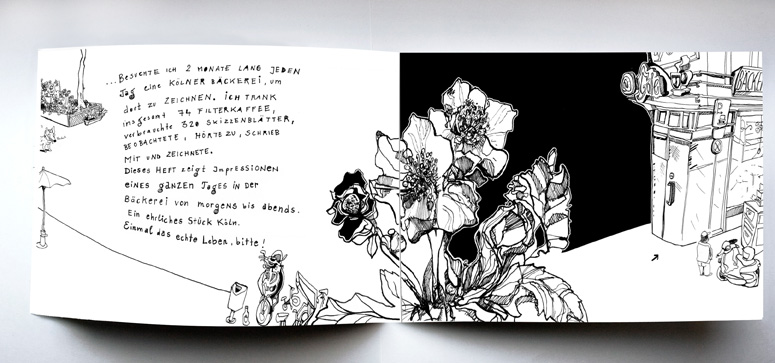 ...Besuchte ich 2 Monate lang jeden
Tag eine Kölner Bäckerei, um
dort zu zeichnen. Ich trank
insgesamt 74 Filterkaffee,
verbrauchte 320 Skizzenblätter,
beobachtete, hörte zu, schrieb
mit und zeichnete.
Dieses Heft zeigt Impressionen
eines ganzen Tages in der
Bäckerei von morgens bis abends.
Ein ehrliches Stück Köln.
Einmal das echte Leben, bitte!